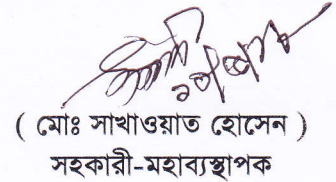 ( মোঃ সাখাওয়াত হোসেন )
সহকারী-মহাব্যস্থাপক